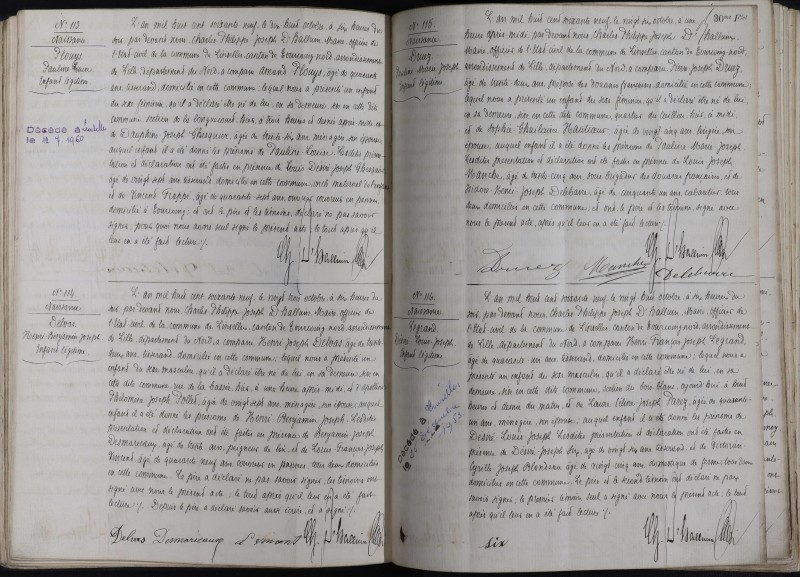 N° 113
Naissance
Plouys
Pauline Louise
Enfant légitime
Décédé à
le 12 7 1960
L'an mil huit cent soixante neuf, le dix huit octobre, à six heures du
soir, par devant nous, Charles Philippe Joseph D'Hallum, Maire, officier de
l'état civil de la commune de Linselles, canton de Tourcoing nord, arrondissement
de Lille, département du Nord, a comparu Amand Plouys, âgé de quarante
ans, tisserand, domicilié en cette commune, lequel nous a présenté un enfant
du sexe féminin, qu'il a déclaré être né de lui, en sa demeure, sise en cette dite
commune, à trois heures et demie après-midi et
de Dauphine Joseph âgée de trente six ans, ménagère, son épouse,
auquel enfant il a été donné les prénoms de Pauline Louise. Lesdites présen-
tation et déclaration ont été faites en présence de Louis Désiré Joseph
âgé de vingt sept ans, tisserand, domicilié en cette commune, oncle maternel de l'enfant
et de Vincent Frappé, âgé de quarante sept ans,
domicilié à Tourcoing; et ont le père et les témoins, déclaré ne pas savoir
signer, pourquoi nous avons seul signé le présent acte, le tout après qu'il
leur en a été fait lecture./.
N° 114
Naissance
Delvas
Henri-Benjamin-Joseph
Enfant légitime
L'an mil huit cent soixante neuf, le vingt trois octobre, à six heures du
soir, par devant nous, Charles Philippe Joseph D'Hallum, Maire, officier de
l'état civil de la commune de Linselles, canton de Tourcoing nord, arrondissement
de Lille, département du Nord, a comparu Henri Joseph Delvas, âgé de trente
ans, tisserand, domicilié en cette commune, lequel nous a présenté un
enfant du sexe masculin, qu'il a déclaré être né de lui en sa demeure, sise en
cette dite commune, rue de la Basse, hier, à une heure après midi, et d'Apolline
Philomène Joseph Pollet, âgée de vingt sept ans, ménagère, son épouse, auquel
enfant il a été donné les prénoms de Henri Benjamin Joseph. Lesdites
présentation et déclaration ont été faites en présence de Benjamin Joseph
Desmarecaux, âgé de trente ans, peigneur de lin, et de Louis François Joseph
âgé de quarante neuf ans, tous deux domiciliés
en cette commune. Le père a déclaré ne pas savoir signer, les témoins ont
signé avec nous le présent acte, le tout après qu'il leur en a été fait
lecture./. Depuis le père a déclaré savoir écrire, et a signé./.
Delvas Desmarecaux
30me Fo
N° 115
Naissance
Druez
Pauline-Marie-Joseph
Enfant légitime
L'an mil huit cent soixante neuf, le vingt six octobre, à une
heure après-midi, par devant nous, Charles Philippe Joseph D'Hallum,
Maire, officier de l'état civil de la commune de Linselles, canton de Tourcoing nord,
arrondissement de Lille, département du Nord, a comparu Pierre Joseph Druez,
âgé de trente-huit ans, préposé des douanes françaises, domicilié en cette commune,
lequel nous a présenté un enfant du sexe féminin, qu'il a déclaré être né de lui,
en sa demeure, sise en cette dite commune, hier, à midi,
et de Sophie Ghislaine Hautcœur, âgée de vingt cinq ans, son
épouse, auquel enfant il a été donné les prénoms de Pauline Marie Joseph
Lesdites présentation et déclaration ont été faites en présence de Louis Joseph
Manche, âgé de trente cinq ans, sous brigadier des douanes françaises, et de
Isidore Henri Joseph Delebarre, âgé de cinquante un ans, cabaretier, tous
deux domiciliés en cette commune, et ont, le père et les témoins, signé avec
nous le présent acte, après qu'il leur en a été fait lecture./.
Druez Manche Delebarre
N° 116
Naissance
Legrand
Désiré Louis Joseph
Enfant légitime
Décédé à Linselles
1953
L'an mil huit cent soixante neuf, le vingt six octobre, à six heures du
soir, par devant nous, Charles Philippe Joseph D'Hallum, Maire, officier de
l'état civil de la commune de Linselles, canton de Tourcoing nord, arrondissement
de Lille, département du Nord, a comparu Henri François Joseph Legrand,
âgé de quarante six ans, tisserand, domicilié en cette commune; lequel nous a
présenté un enfant du sexe masculin, qu'il a déclaré être né de lui, en sa
demeure, sise en cette dite commune, section du bois-blanc, à huit
heures et demie du matin, et de Laure Parez, âgée de quarante-
un ans, ménagère, son épouse; auquel enfant il a été donné les prénoms de
Désiré Louis Joseph. Lesdites présentation et déclaration ont été faites en
présence de Désiré Joseph âgé de vingt six ans, tisserand, et de Victorien
Cyrille Joseph Blondeau, âgé de vingt cinq ans, domestique de ferme, tous deux
domiciliés en cette commune. Le père et le second témoin ont déclaré ne pas
savoir signer, le premier témoin seul a signé avec nous le présent acte; le tout
après qu'il leur en a été fait lecture./.
six